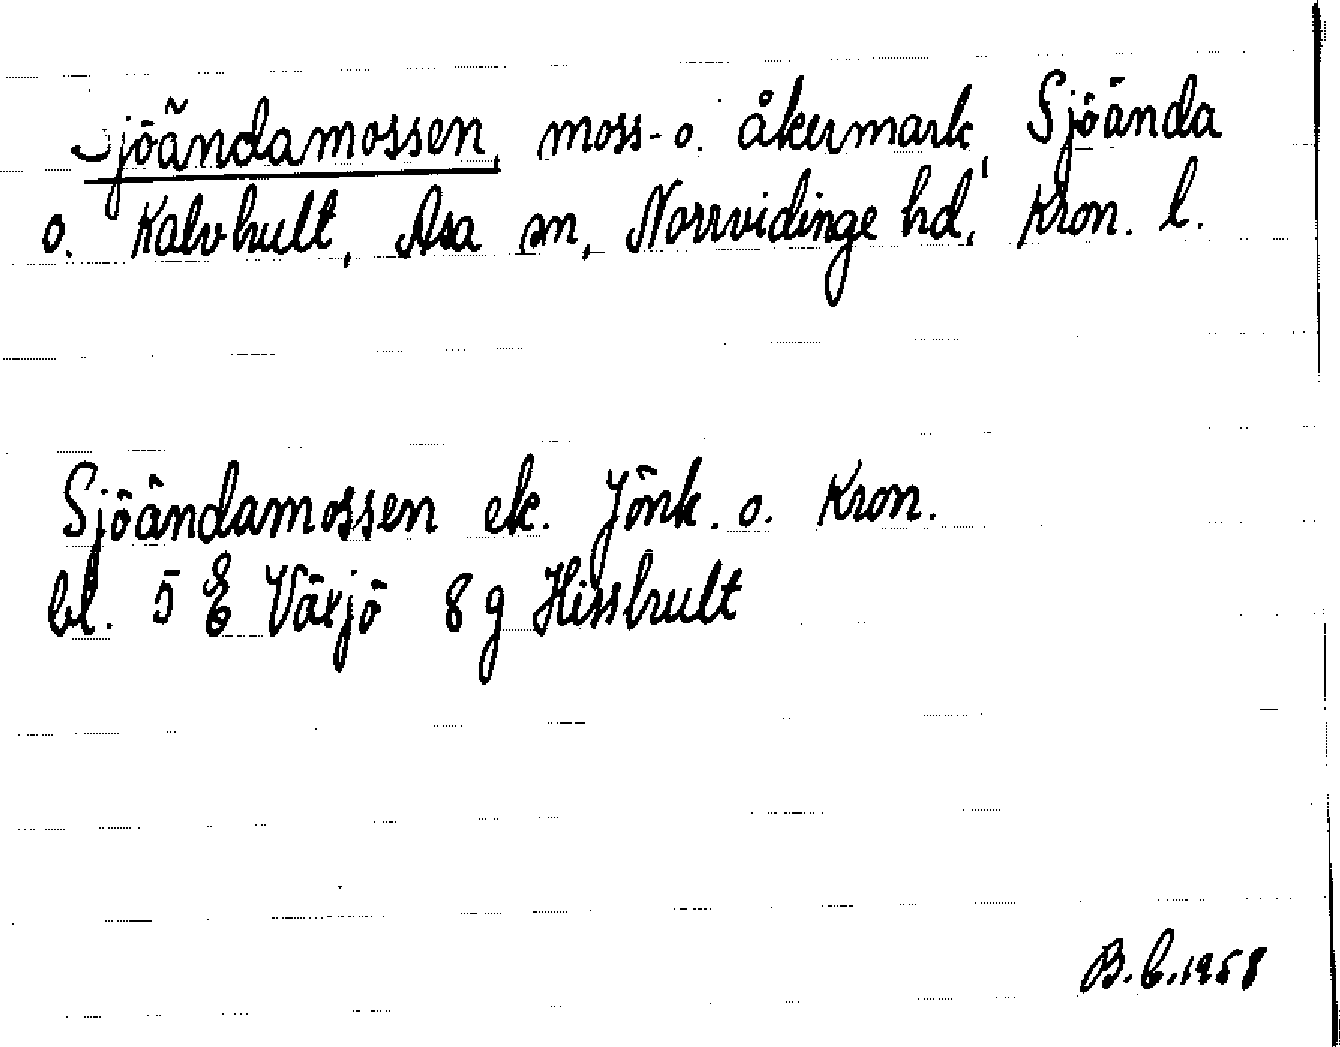 Sjöändamossen, moss- o. åkermark, Sjöända
o. Kalvhult, Asa sn, Norrvidinge hd, Kron. l.
Sjöändamossen ek. Jönk. o. Kron.
bl. 5 E Växjö 8 g Hisshult
B.b.1958